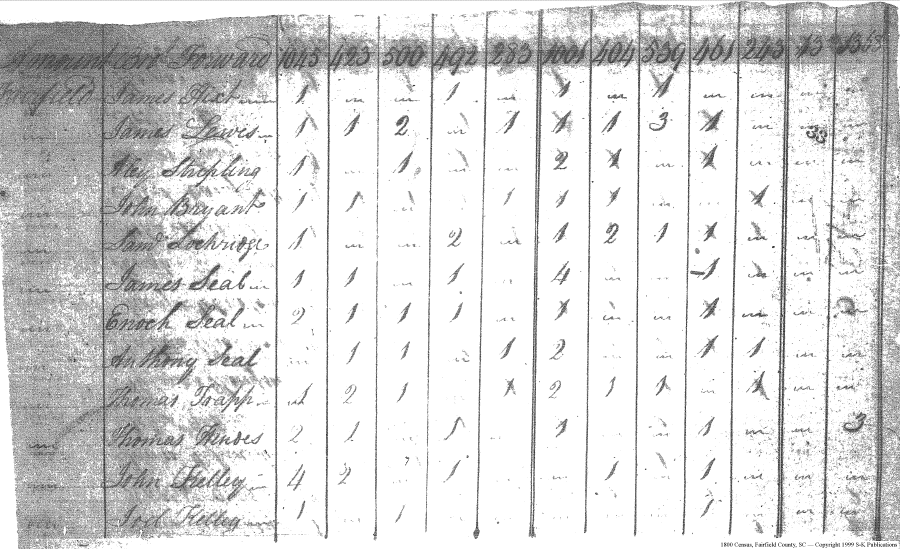 Amount Brot Forward 1045 423 500 492 283 1001 404 539 461 243 13
Fairfield James 1 " " 1 " 1 " 1 " " " "
" James Lewis 1 1 2 " 1 1 1 3 1 " 33 "
" Stripling 1 " 1 " " 2 1 " 1 " " "
" John Bryant 1 1 " " 1 1 1 " " 1 " "
" Saml Lochridge 1 " " 2 " 1 2 1 1 " " "
" James Seal 1 1 " 1 " 4 " " 1 " " "
" Enoch Seal 2 1 1 1 " 1 " " 1 " " "
" Anthony Seal " 1 1 " 1 2 " " 1 1 " "
" Thomas Trapp 2 1 " 1 2 1 1 " 1 " "
" Thomas 2 1 " 1 " 1 " " 1 " " 3
" John Kelley 4 2 1 " " 1 " 1 " " "
" Kelley 1 " 1 " " " " " 1 " " "
1800 Census, Fairfield County, SC — Copyright 1999 S-K Publications